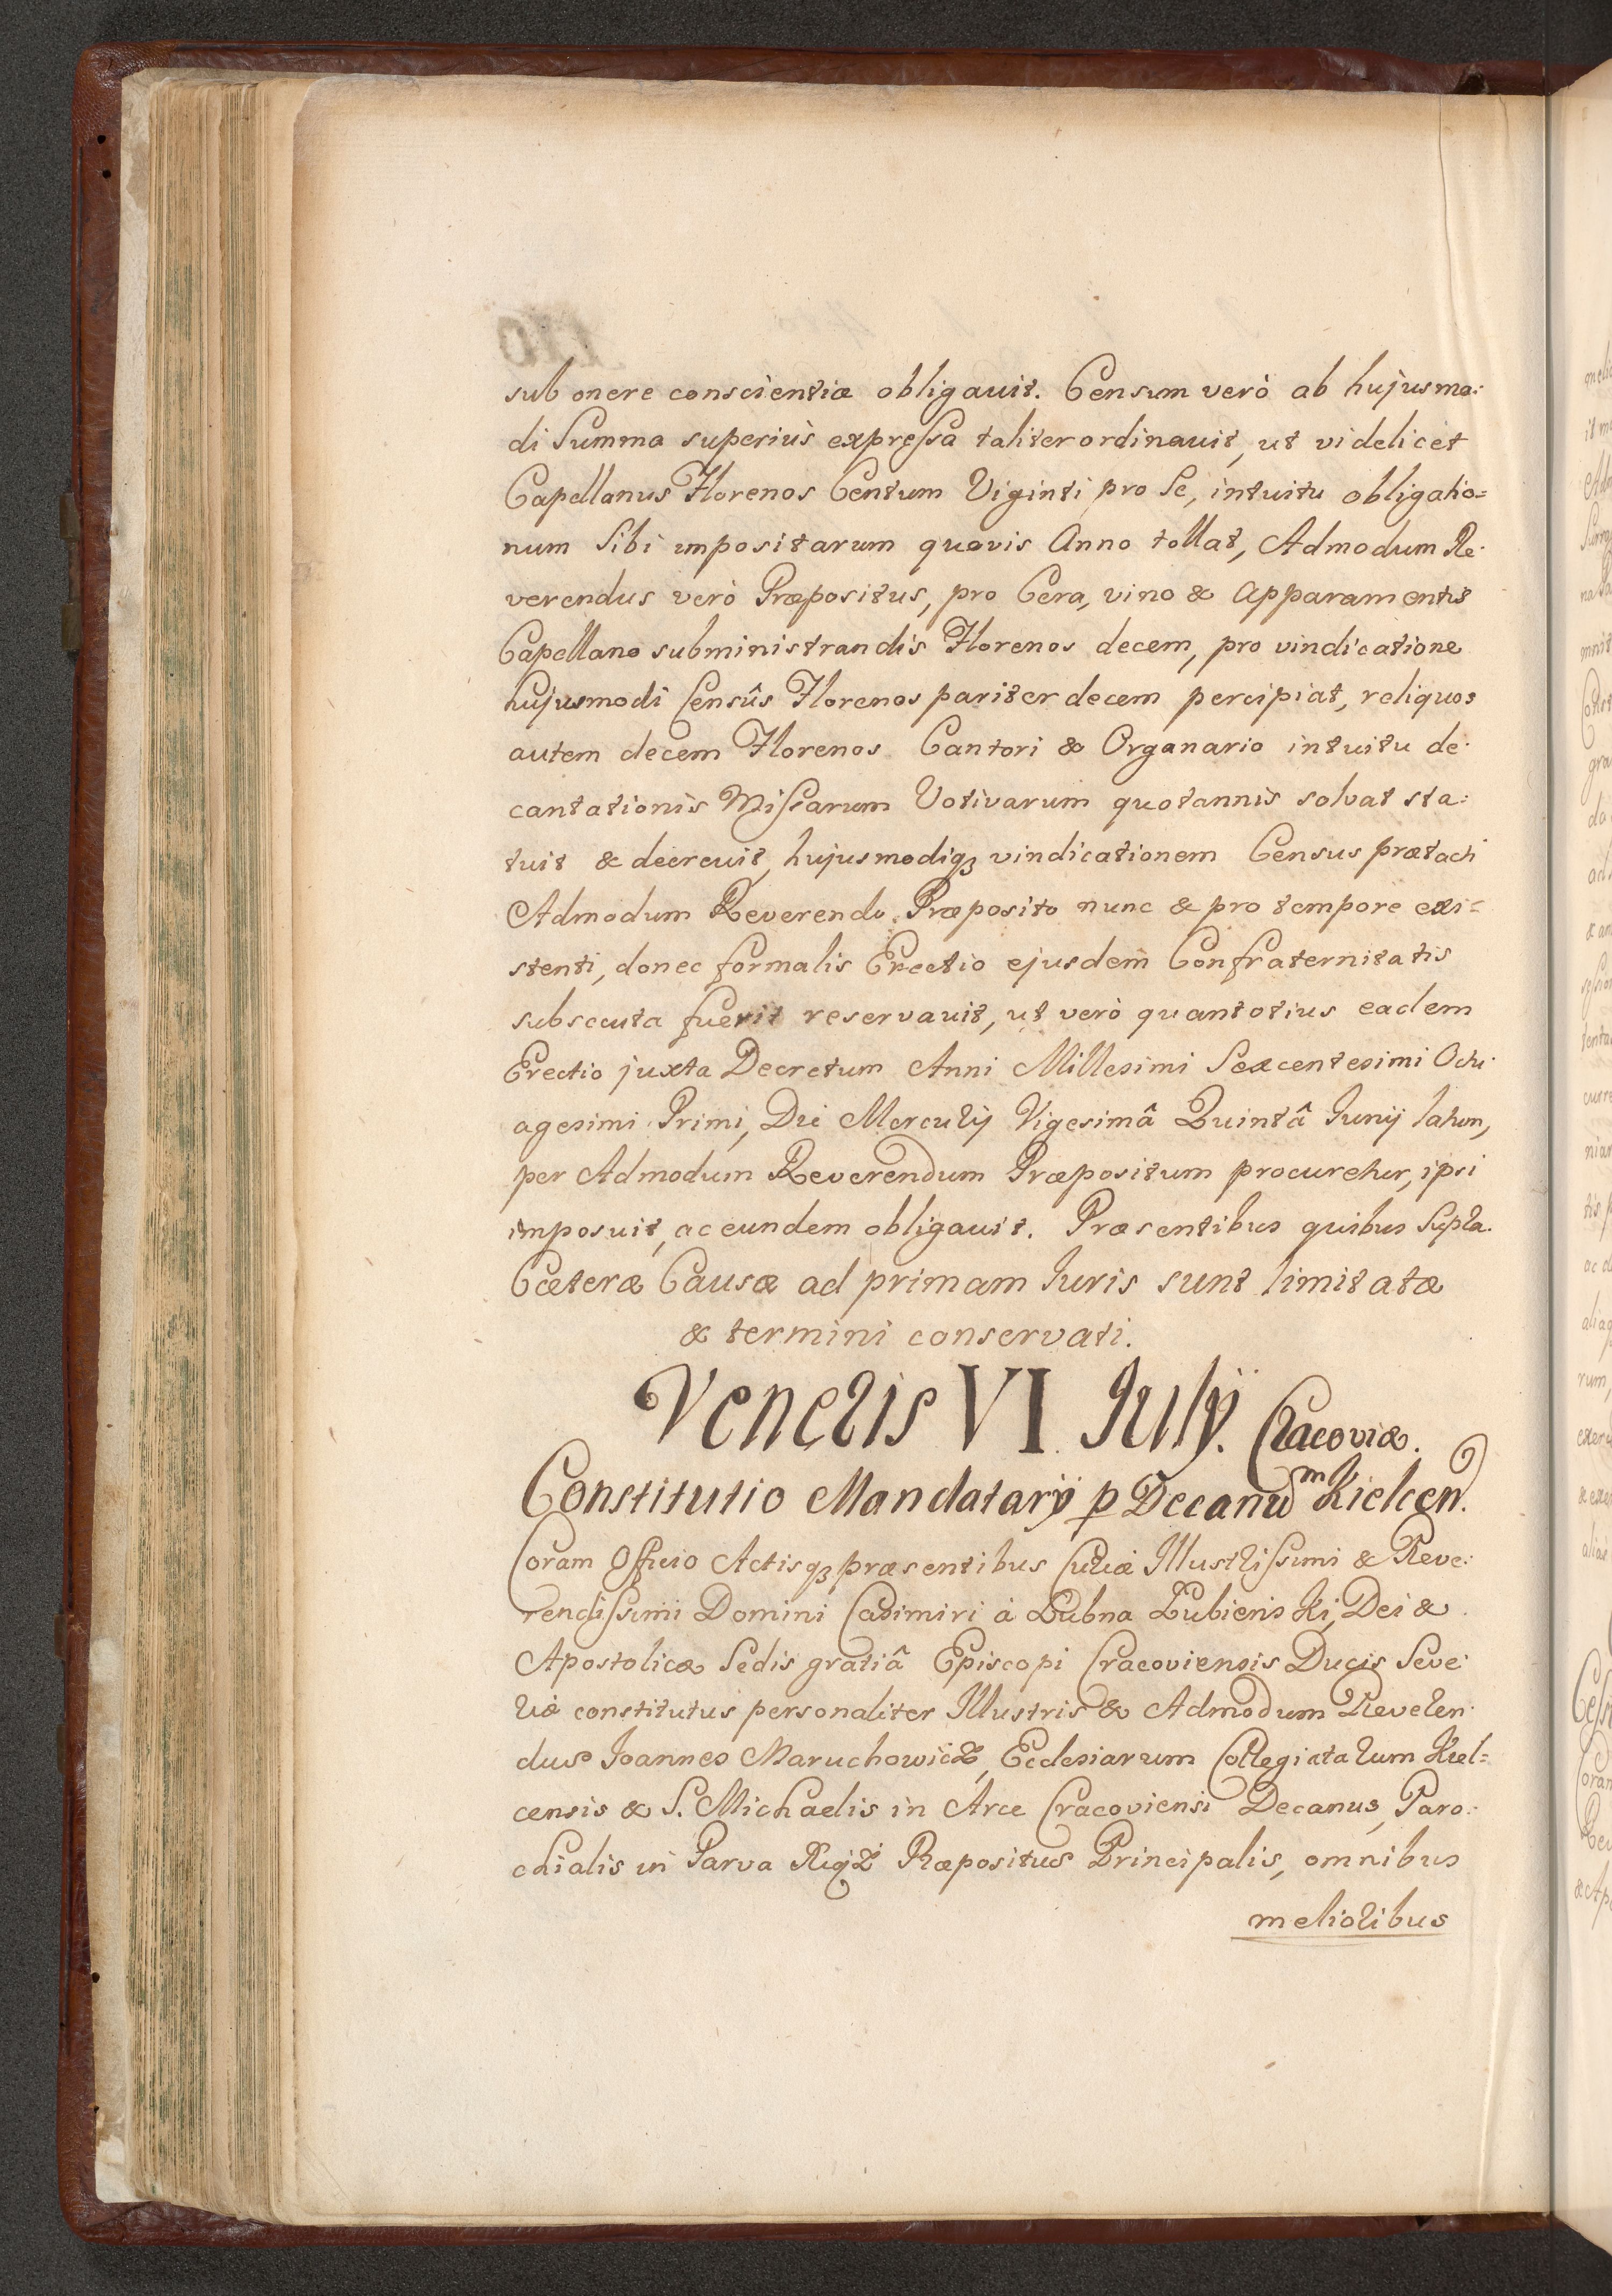 sub onere conscientiæ obligavit. Censum verò ab hujusmo:
di Summa superiùs expressa taliter ordinavit, ut videlicèt
Capellanus Florenos Centum Viginti pro Se, intuitu obligatio=
num Sibi impositarum quovis Anno tollat, Admodum Re:
verendus verò Præpositus, pro Cera, vino & Apparamentis
Capellano subministrandis Florenos decem, pro vindicatione
hujusmodi Censûs Florenos pariter decem percipiat, reliquos
autem decem Florenos Cantori & Organario intuitu de:
cantationis Missarum Votivarum quotannis solvat sta:
tuit & decrevit, hujusmodiq3 vindicationem Census prætacti
Admodum Reverendo Præposito nunc & pro tempore exi=
stenti, donec formalis Erectio ejusdem Confraternitatis
subsecuta fuerit reservavit, ut verò quantotius eadem
Erectio juxta Decretum Anni Millesimi Sexcentesimi Octu:
agesimi Primi, Die Mercurij Vigesimâ Quintâ Junij latum,
per Admodum Reverendum Præpositum procuretur, ipsi
imposuit, ac eundem obligavit. Præsentibus quibus Supra.
Cæteræ Causæ ad primam Juris sunt limitatæ
& termini conservati.
Veneris VI July. Cracoviæ.
Constitutio Mandatarÿ p Decanu͞m Kielcen.
Coram Officio Actisq3 præsentibus Curiæ Illustrissimi & Reve:
rendissimi Domini Casimiri à Łubna Łubienski, Dei &
Apostolicæ Sedis gratiâ Episcopi Cracoviensis Ducis Seve:
riæ constitutus personaliter Illustris & Admodum Reveren:
dus Joannes Maruchowicz, Ecclesiarum Collegiatarum Kiel=
censis & S. Michaelis in Arce Cracoviensi Decanus, Paro:
chialis in Parva Præpositus Principalis, omnibus
melioribus